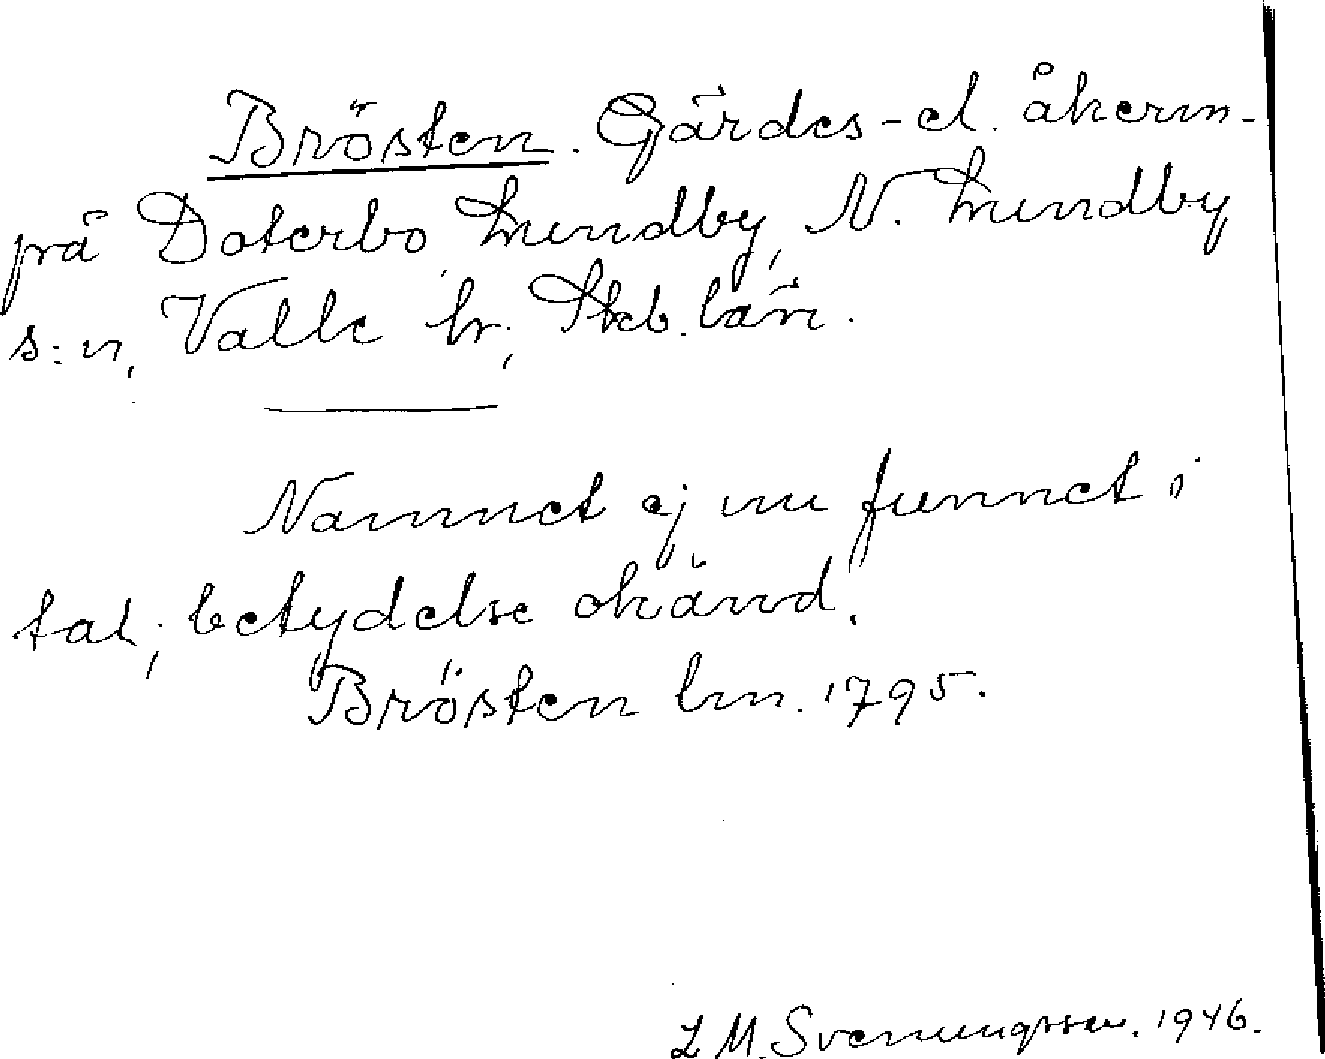 Brösten. Gärdes- el. åkern-
på Doterbo, Lundby, N. Lundby
s:n, Valle hr, Skb. län.
Namnet ej nu funnet i
tal; betydelse okänd.
Brösten lm. 1795.
L M. Svenungsson. 1946.